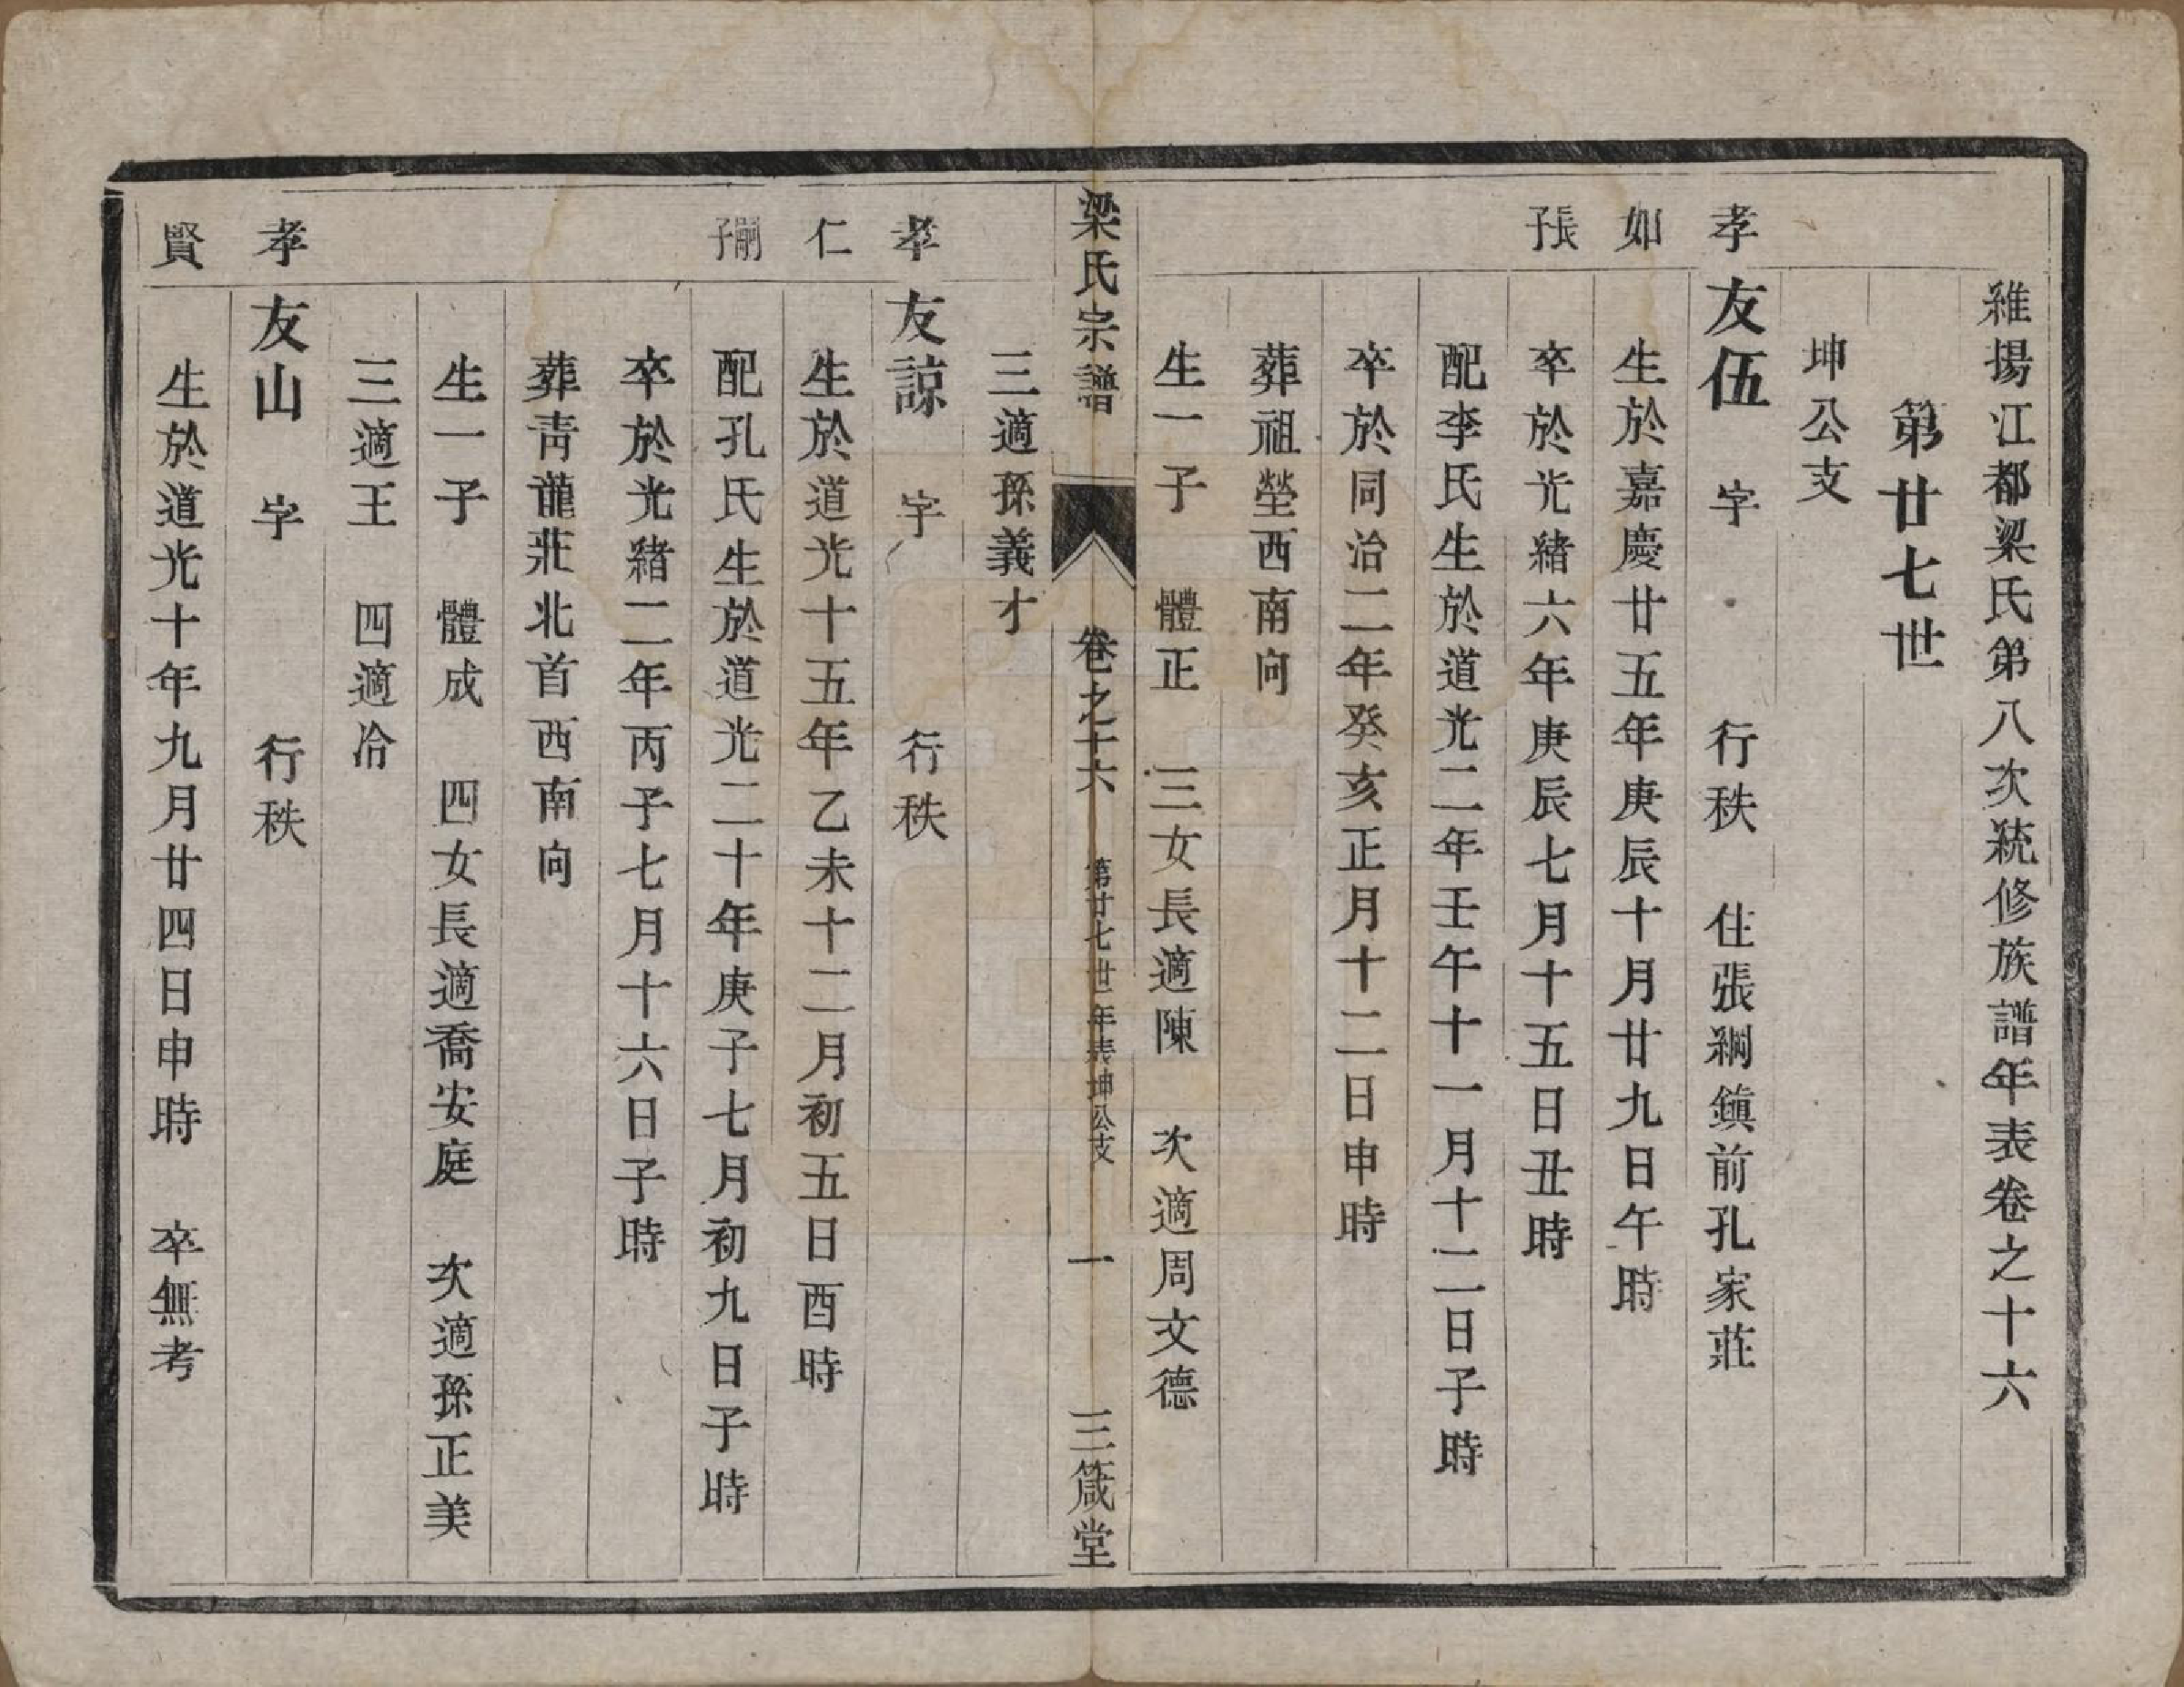 維揚江都梁氏第八次統修族譜年表卷之十六
第廿七世
坤公支
孝如長子
友伍 字 行秩 住張綱鎮前孔家莊
生於嘉慶廿五年庚辰十月廿九日午時
卒於光緒六年庚辰七月十五日丑時
配李氏生於道光二年壬午十一月十二日子時
卒於同治二年癸亥正月十二日申時
葬祖塋西南向
生一子 體正 三女長適陳 次適周文德
梁氏宗譜 卷之十六 第廿七世年表坤公支 一 三箴堂
三適孫義才
孝仁嗣子
友諒 字 行秩
生於道光十五年乙未十二月初五日酉時
配孔氏生於道光二十年庚子七月初九日子時
卒於光緒二年丙子七月十六日子時
葬青龍莊北首西南向
生一子 體成 四女長適喬安庭 次適孫正美
三適王 四適冷
孝賢
友山 字 行秩
生於道光十年九月廿四日申時 卒無考